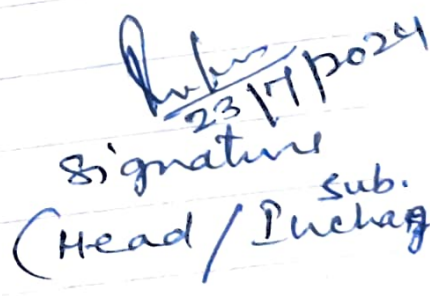 23/7/2024
Signature
sub.
(Head / Incharg